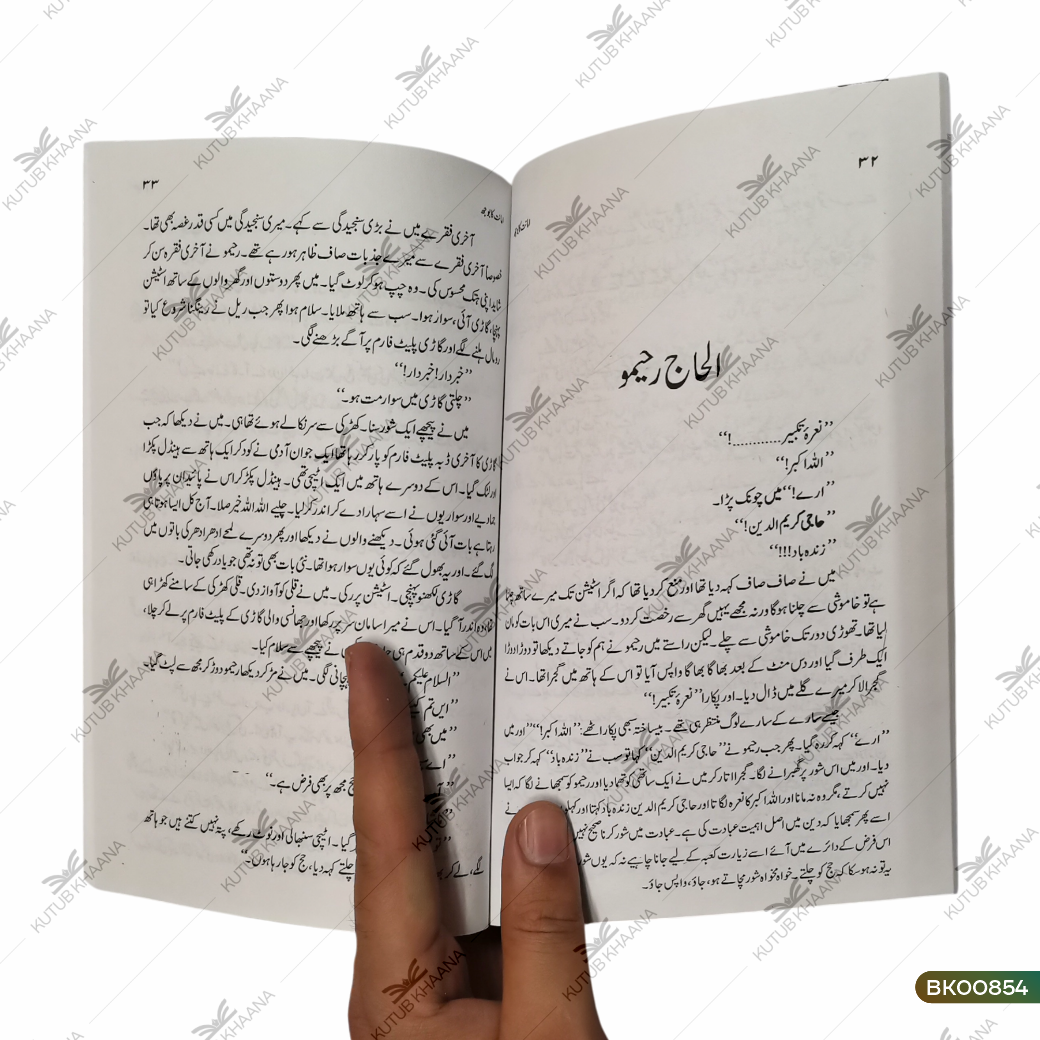 ۳۲
الحاج رحیمو
’’نعرۂ تکبیر............!‘‘
’’اللہ اکبر!‘‘
’’ارے!‘‘ میں چونک پڑا۔
’’حاجی کریم الدین!‘‘
’’زندہ باد!!!‘‘
میں نے صاف صاف کہہ دیا تھا اور منع کر دیا تھا کہ اگر اسٹیشن تک میرے ساتھ چلنا
ہے تو خاموشی سے چلنا ہوگا ورنہ مجھے یہیں گھر سے رخصت کر دو۔ سب نے میری اس بات کو مان
لیا تھا۔ تھوڑی دور تک خاموشی سے چلے لیکن راستے میں رحیمو نے ہم کو جاتے دیکھا تو دوڑا دوڑا
ایک طرف گیا اور دس منٹ کے بعد بھاگا بھاگا واپس آیا تو اس کے ہاتھ میں گجرا تھا۔ اس نے
گجرا لا کر میرے گلے میں ڈال دیا۔ اور پکارا ’’نعرۂ تکبیر!‘‘
جیسے سارے کے سارے لوگ منتظر ہی تھے۔ بیساختہ سبھی پکار اٹھے: ’’اللہ اکبر!‘‘ اور میں
’’ارے‘‘ کہہ کر رہ گیا۔ پھر جب رحیمو نے ’’حاجی کریم الدین‘‘ کہا تو سب نے ’’زندہ باد‘‘ کہہ کر جواب
دیا۔ اور میں اس شور پر گھبرانے لگا۔ گجرا اتار کر میں نے ایک ساتھی کو تھما دیا اور رحیمو کو سمجھانے لگا کہ ایسا
نہیں کرتے، مگر وہ نہ مانا اور اللہ اکبر کا نعرہ لگاتا اور حاجی کریم الدین زندہ باد کہتا اور کہلو نے
اسے پھر سمجھایا کہ دین میں اصل اہمیت عبادت کی ہے۔ عبادت میں شور کرنا صحیح نہیں
اس فرض کے دائرے میں آئے اسے زیارت کعبہ کے لیے جانا چاہیے نہ کہ یوں شور
یہ تو نہ ہو سکا کہ حج کو چلتے۔ خواہ مخواہ شور مچاتے ہو، جاؤ، واپس جاؤ۔
۳۳
آخری فقرے میں نے بڑی سنجیدگی سے کہے۔ میری سنجیدگی میں کسی قدر غصہ بھی تھا۔
خصوصاً آخری فقرے سے میرے جذبات صاف ظاہر ہو رہے تھے۔ رحیمو نے آخری فقرہ سن کر
شاید اپنی ہتک محسوس کی۔ وہ چپ ہو کر لوٹ گیا۔ میں پھر دوستوں اور گھر والوں کے ساتھ اسٹیشن
پہنچا، گاڑی آئی، سوار ہوا۔ سب سے ہاتھ ملایا۔ سلام ہوا پھر جب ریل نے رینگنا شروع کیا تو
رومال ہلنے لگے اور گاڑی پلیٹ فارم پر آگے بڑھنے لگی۔
’’خبردار! خبردار!‘‘
’’چلتی گاڑی میں سوار مت ہو۔‘‘
میں نے پیچھے ایک شور سنا۔ کھڑکی سے سر نکالے ہوئے تھا ہی۔ میں نے دیکھا کہ جب
گاڑی کا آخری ڈبہ پلیٹ فارم کو پار کر رہا تھا ایک جوان آدمی نے کود کر ایک ہاتھ سے ہینڈل پکڑا
اور لٹک گیا۔ اس کے دوسرے ہاتھ میں ایک اٹیچی تھی۔ ہینڈل پکڑ کر اس نے پائیدان پر پاؤں
جما دیے اور سواریوں نے اسے سہارا دے کر اندر کر لیا۔ چلیے اللہ اللہ خیر صلا۔ آج کل ایسا ہوتا ہی
رہتا ہے بات آئی گئی ہوئی۔ دیکھنے والوں نے دیکھا اور پھر دوسرے لمحے ادھر ادھر کی باتوں میں
لگ گئے۔ اور یہ بھول گئے کہ کوئی یوں سوار ہوا تھا۔ نئی بات بھی تو نہ تھی جو یاد رکھی جاتی۔
گاڑی لکھنؤ پہنچی۔ اسٹیشن پر رکی۔ میں نے قلی کو آواز دی۔ قلی کھڑکی کے سامنے کھڑا ہی
تھا، وہ اندر آ گیا۔ اس نے میرا سامان سر پر رکھا اور جھانسی والی گاڑی کے پلیٹ فارم پر لے کر چلا،
بس اس کے ساتھ دو قدم ہی نے پیچھے سے سلام کیا۔
’’السلام علیکم پہچانی لگی۔ میں نے مڑ کر دیکھا رحیمو دوڑ کر مجھ سے لپٹ گیا۔
’’اس تم
’’میں بھی
’’اے
حج مجھ پر بھی فرض ہے۔‘‘
گیا۔ اٹیچی سنبھالی اور نوٹ رکھے، پتہ نہیں کتنے ہیں جو ہاتھ
لگے، لے کر چلتے کہہ دیا، حج کو جا رہا ہوں۔‘‘
BK00854
KUTUB KHAANA